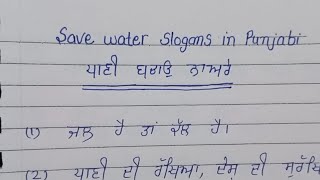 Save water Slogans in Punjabi
ਪਾਣੀ ਬਚਾਓ ਨਾਅਰੇ
(1) ਜਲ ਹੈ ਤਾਂ ਕੱਲ ਹੈ।
(2) ਪਾਣੀ ਦੀ ਰੱਖਿਆ, ਦੇਸ਼ ਦੀ